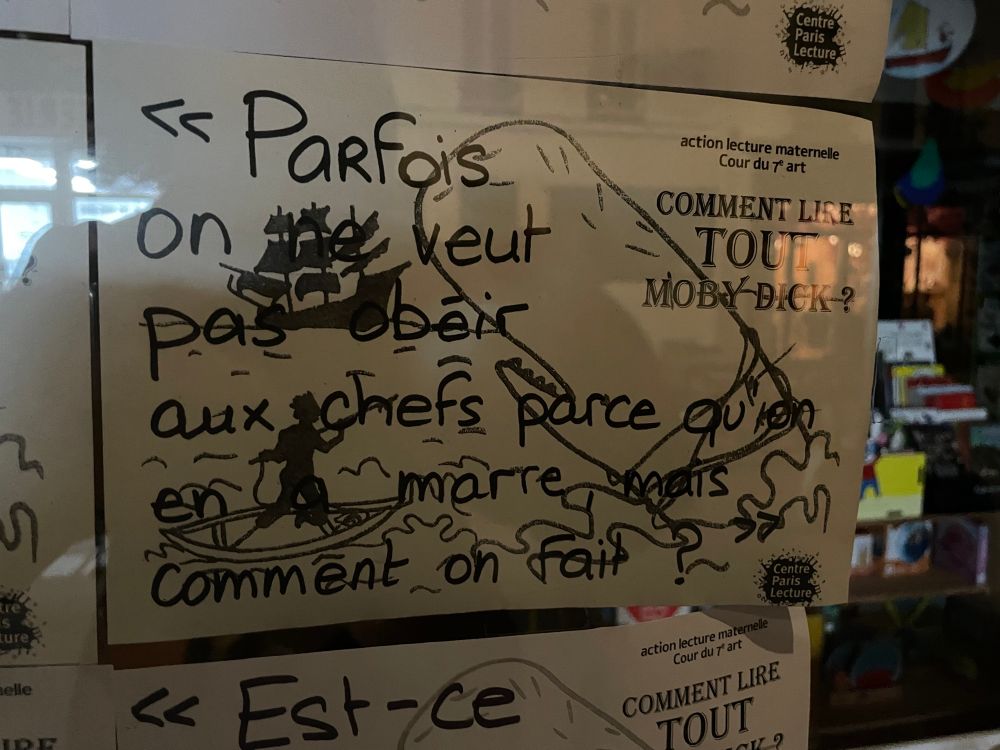 Centre
Paris
Lecture
« Parfois
on ne veut
pas obéir
aux chefs parce qu'on
en a marre mais
comment on fait ? »
action lecture maternelle
Cour du 7e art
COMMENT LIRE
TOUT
MOBY DICK ?
Centre
Paris
Lecture
« Est-ce
action lecture maternelle
Cour du 7e art
COMMENT LIRE
TOUT